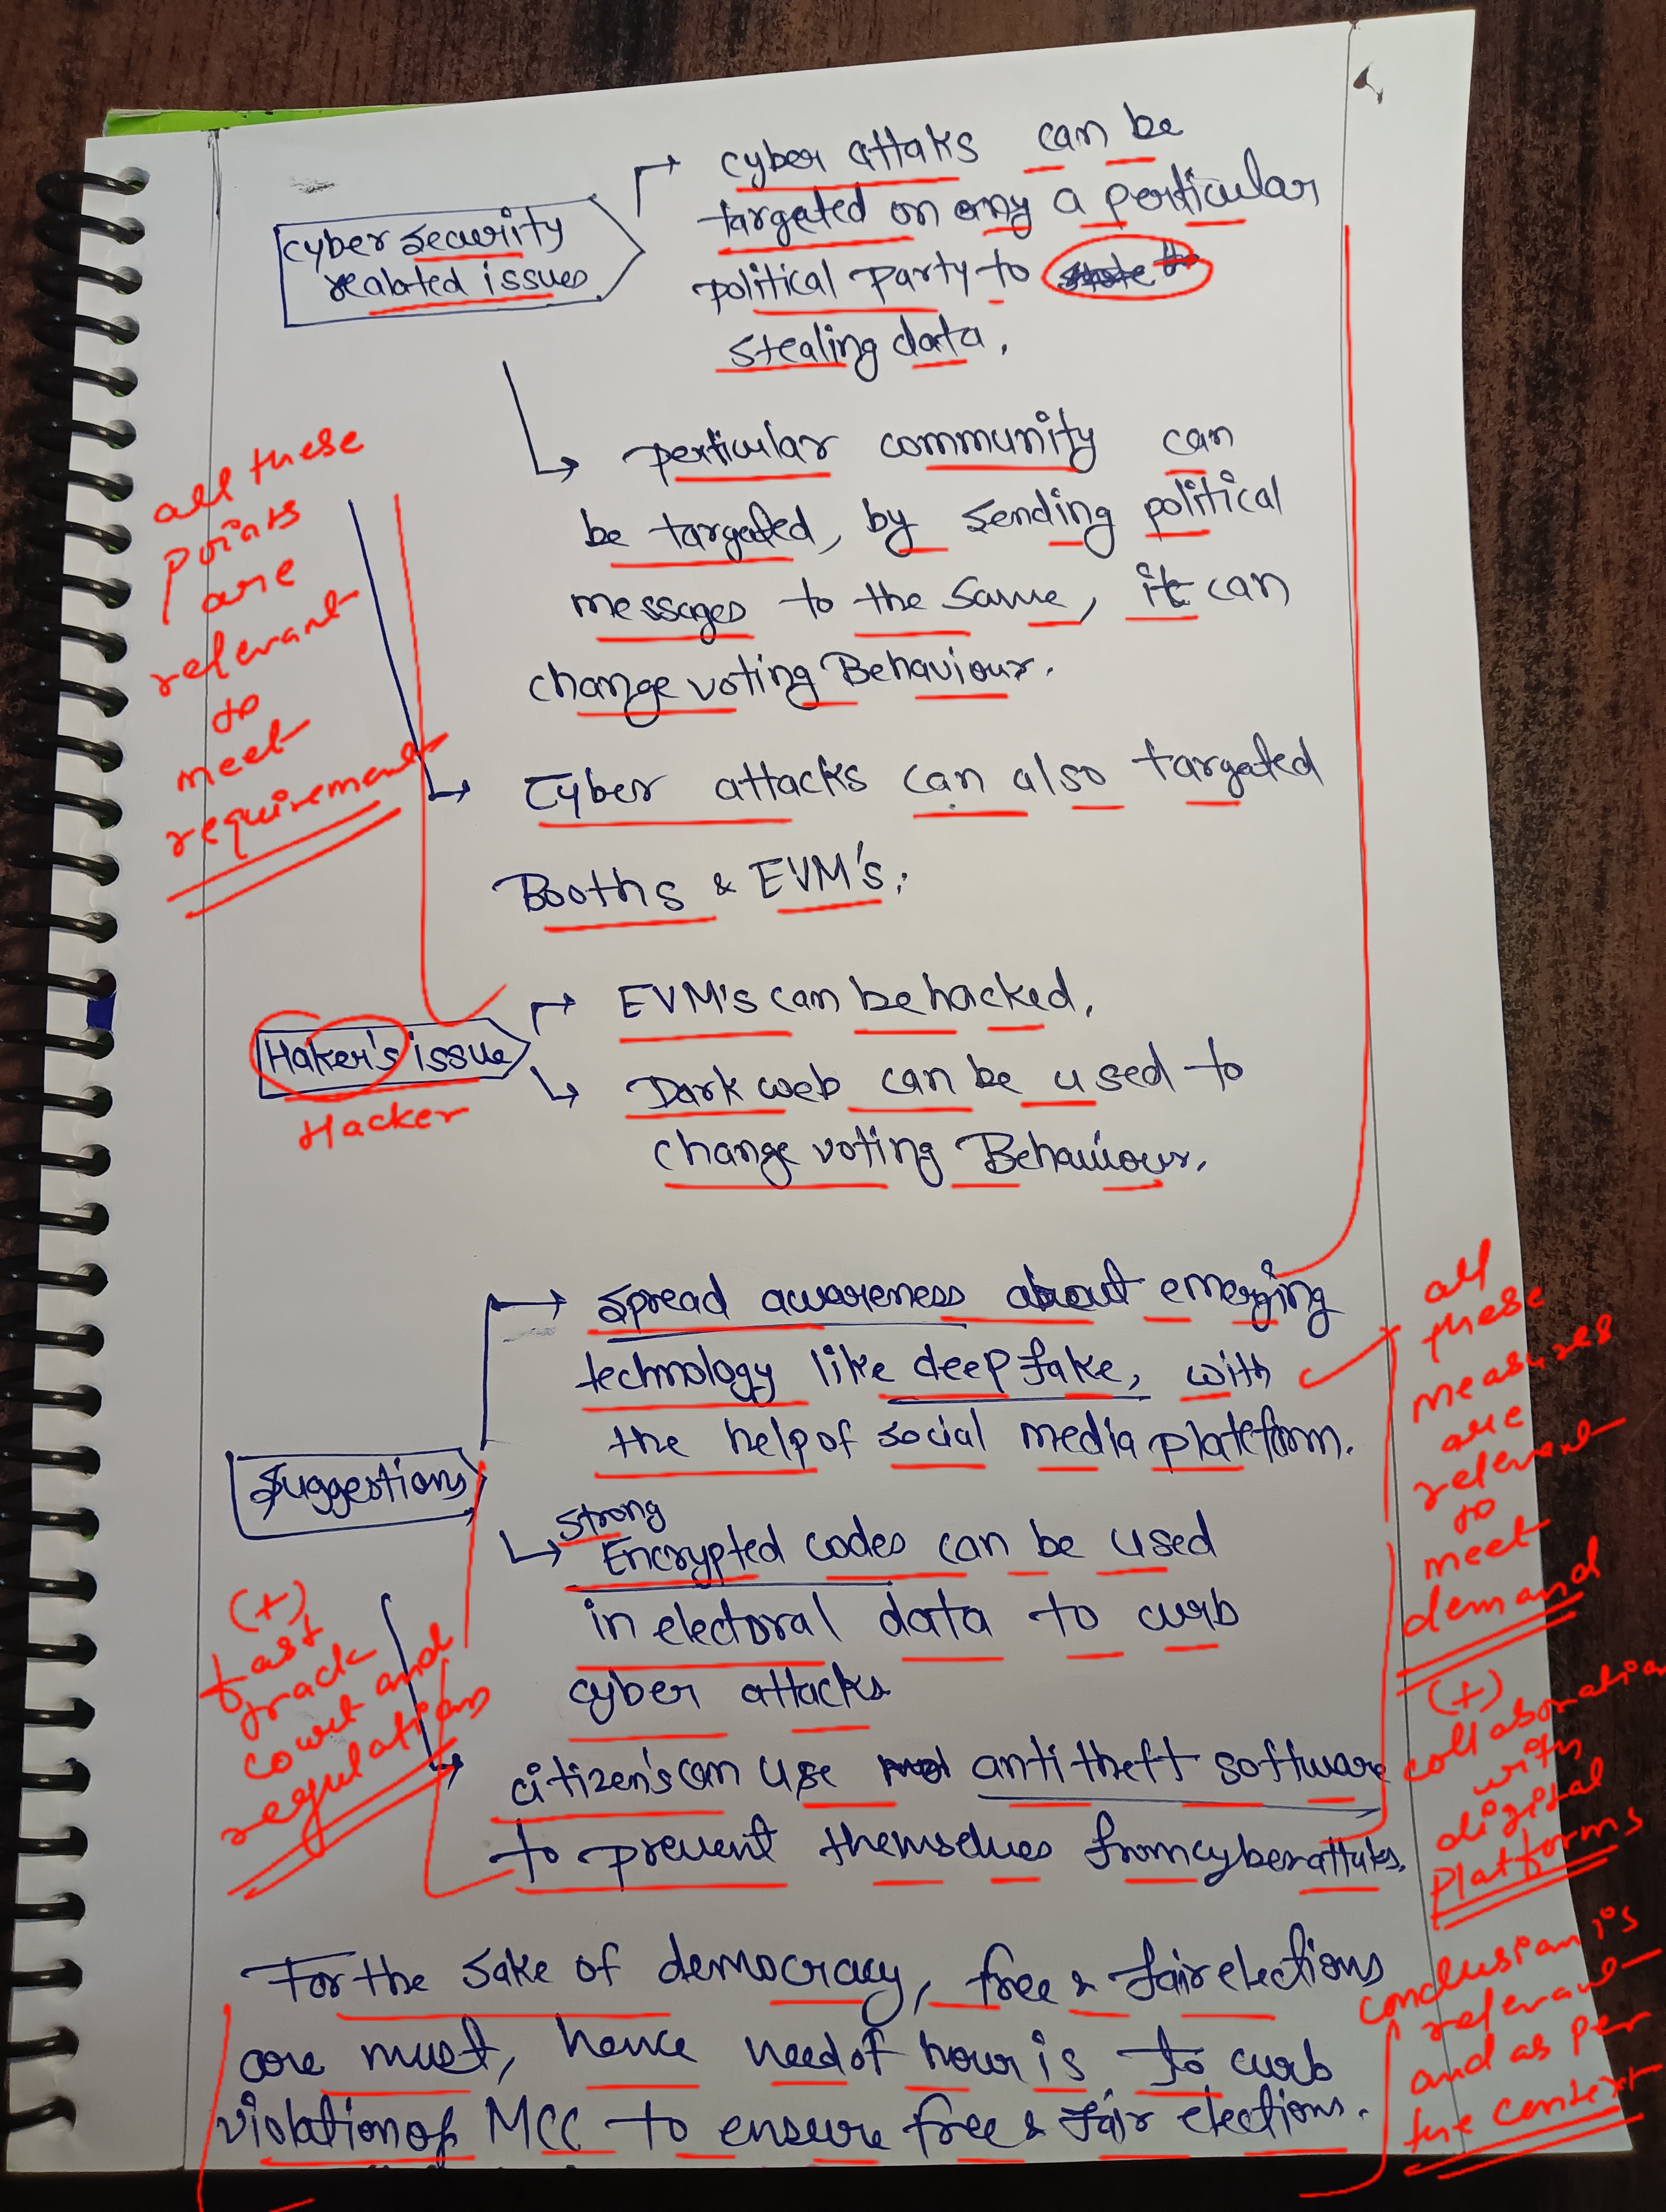 cyber attaks can be
targeted on any a perticular
political party to
stealing data.
cyber security
realated issues
perticular community can
be targated, by sending political
messages to the same, it can
change voting Behaviour.
all these
points
are
relevant
to
meet
requirement
cyber attacks can also targated
Booths & EVM's.
Haker's issue
Hacker
EVM's can be hacked.
Dark web can be used to
change voting Behaviour.
Suggestions
Spread awareness about emerging
technology like deep fake, with
the help of social media plateform.
Strong
Encrypted codes can be used
in electoral data to curb
cyber attacks
citizen's can use anti theft software
to prevent themselves from cyber attaks.
all
these
measures
are
relevant
to
meet
demand
(+)
fast
track
court and
regulations
(+)
collaboration
with
digital
platforms
For the sake of democracy, free & fair elections
are must, hence need of hour is to curb
violation of MCC to ensure free & fair elections.
conclusion is
relevant
and as per
the context